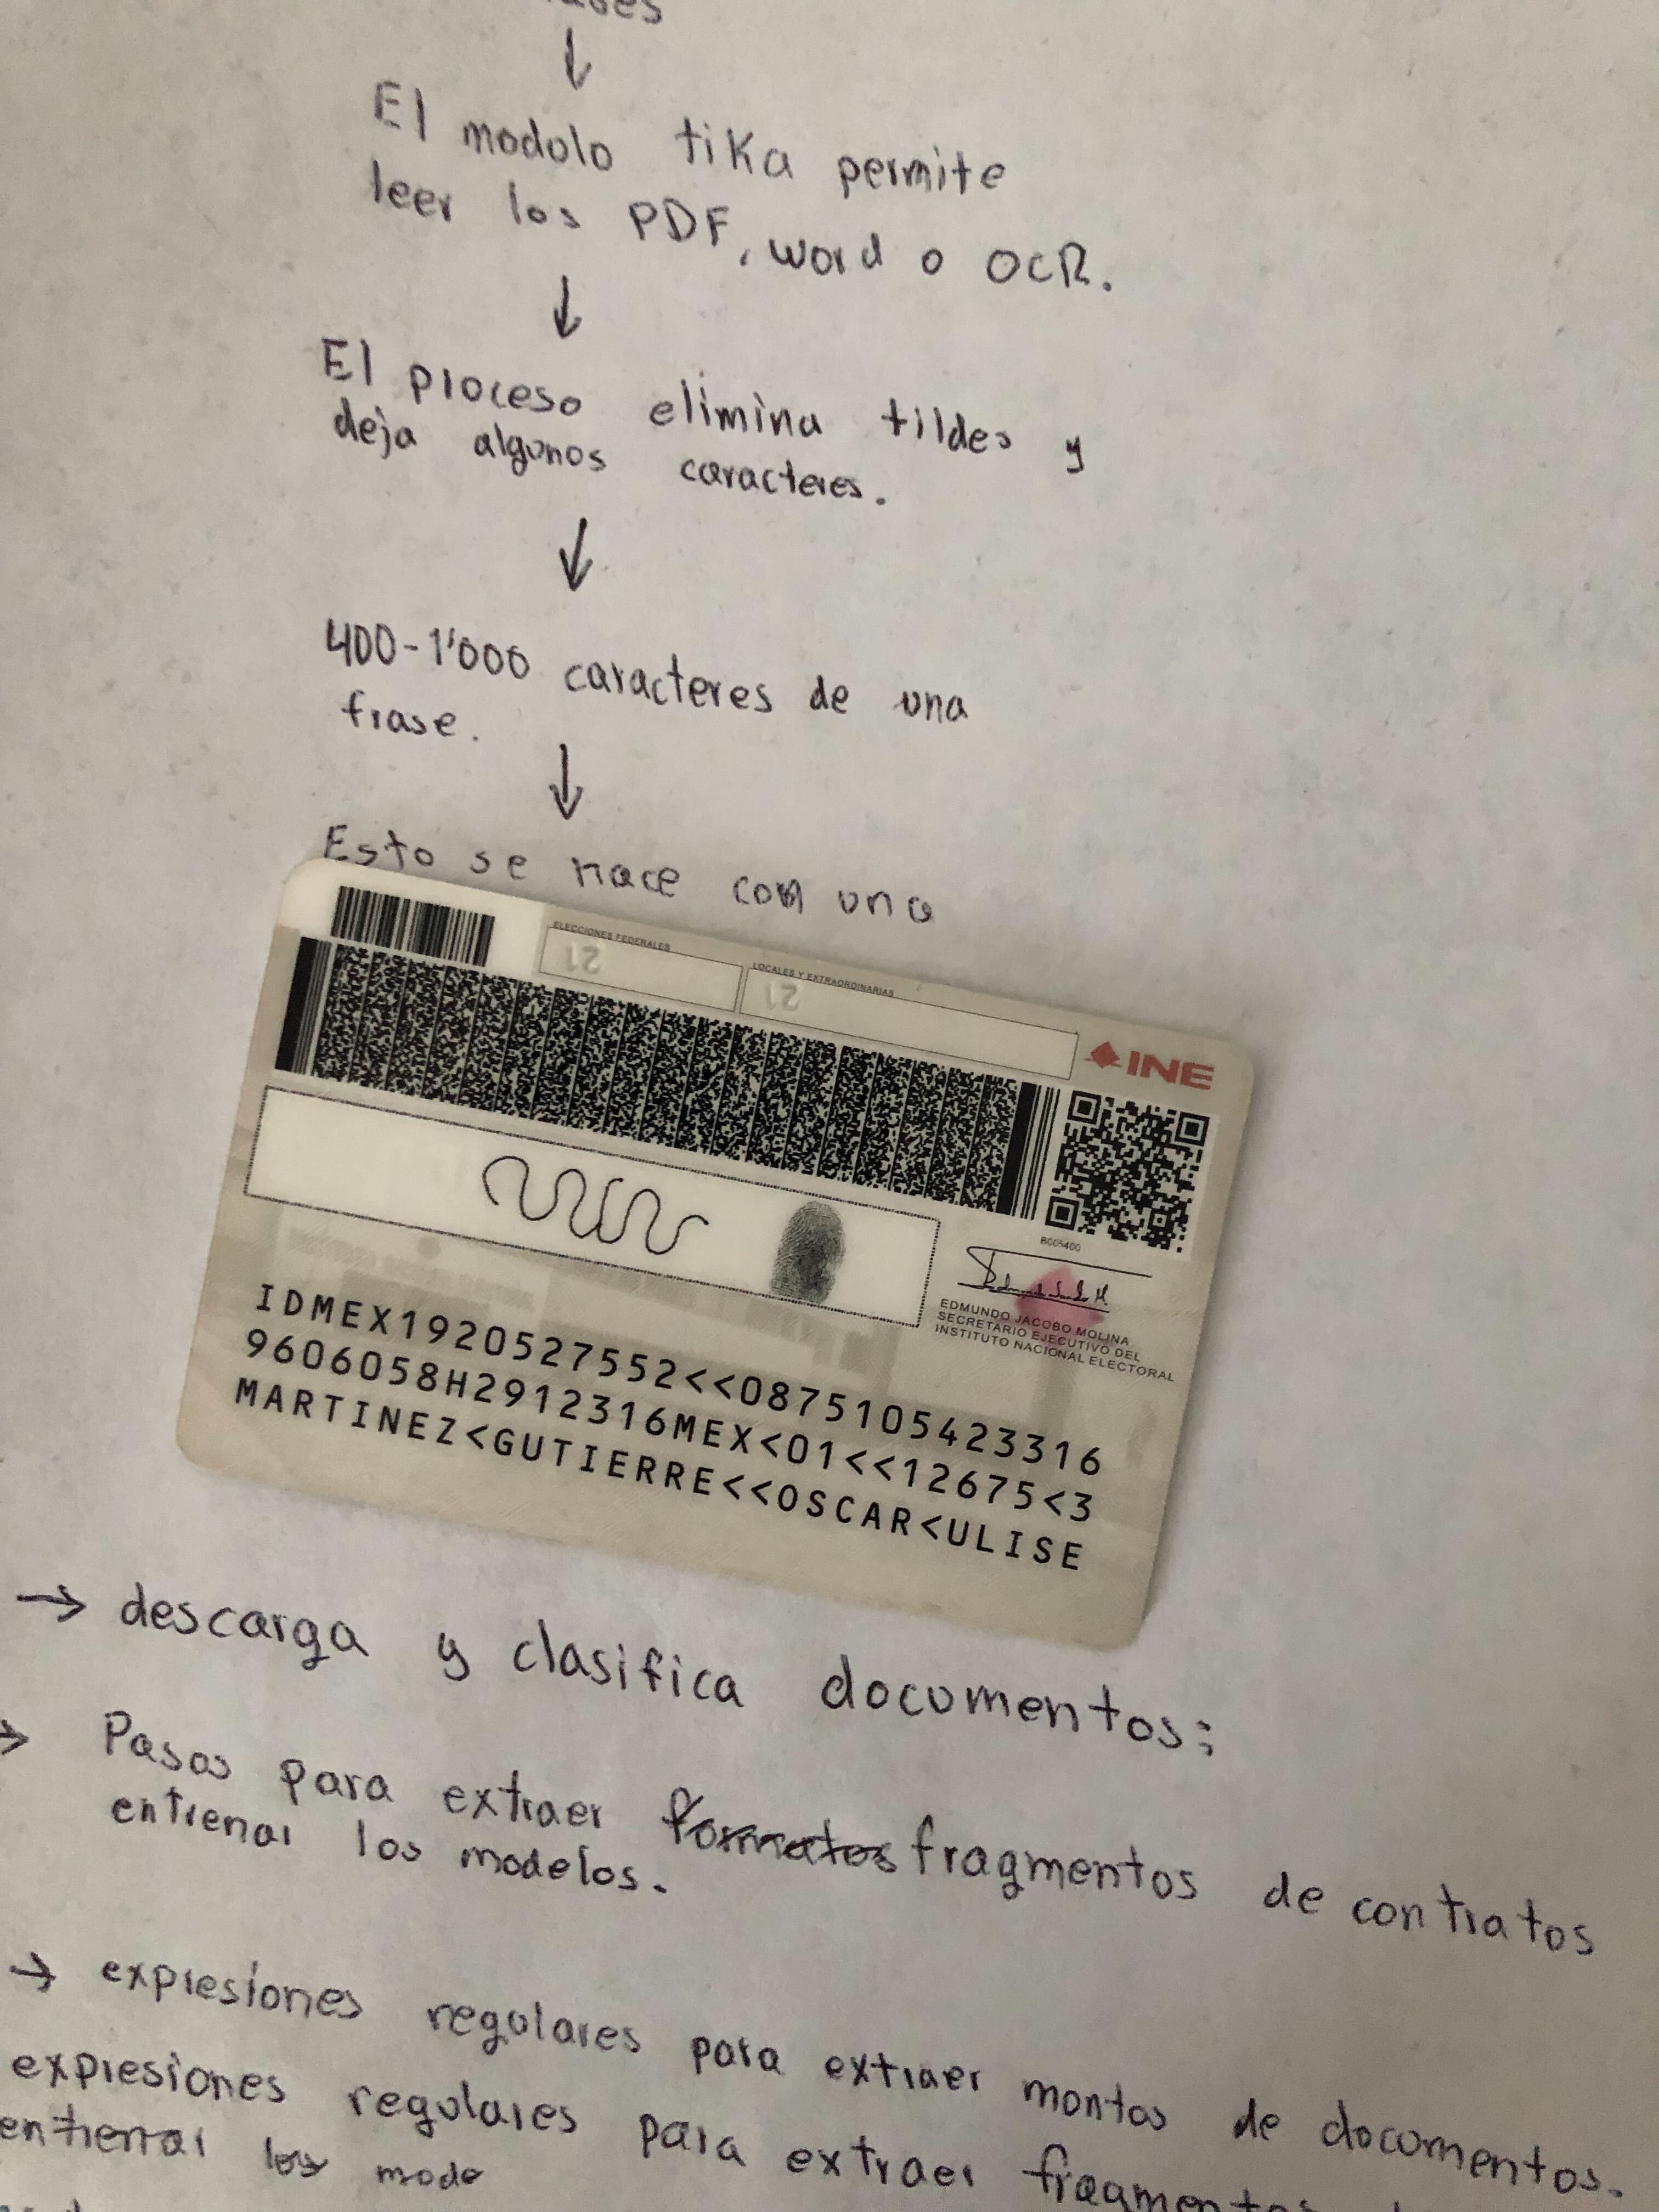 El modolo tika permite
leer los PDF, word o OCR.
El proceso elimina tildes y
deja algunos caracteres.
400-1'000 caracteres de una
frase.
Esto se hace con una
ELECCIONES FEDERALES
21
LOCALES Y EXTRAORDINARIAS
21
INE
EDMUNDO JACOBO MOLINA
SECRETARIO EJECUTIVO DEL
INSTITUTO NACIONAL ELECTORAL
IDMEX1920527552<<0875105423316
9606058H2912316MEX<01<<12675<3
MARTINEZ<GUTIERRE<<OSCAR<ULISE
→ descarga y clasifica documentos:
→ Pasos para extraer formatos fragmentos de contratos
entrenar los modelos.
→ expresiones regulares para extraer montos de documentos.
expresiones regulares para extraer fragmentos
entierrar los mode